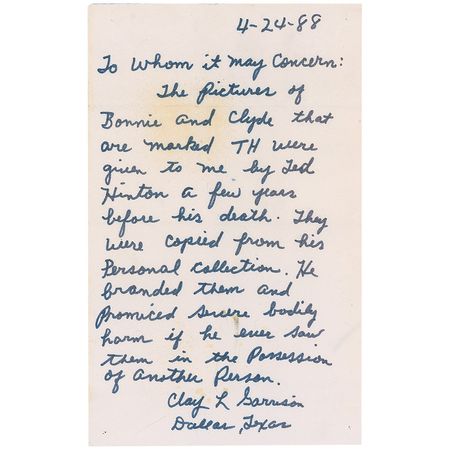 4-24-88
To Whom it may Concern:
The pictures of
Bonnie and Clyde that
are marked TH were
given to me by Ted
Hinton a few years
before his death. They
were copied from his
Personal collection. He
branded them and
Promiced severe bodily
harm if he ever saw
them in the Possession
of another Person.
Clay L Garrison
Dallas, Texas